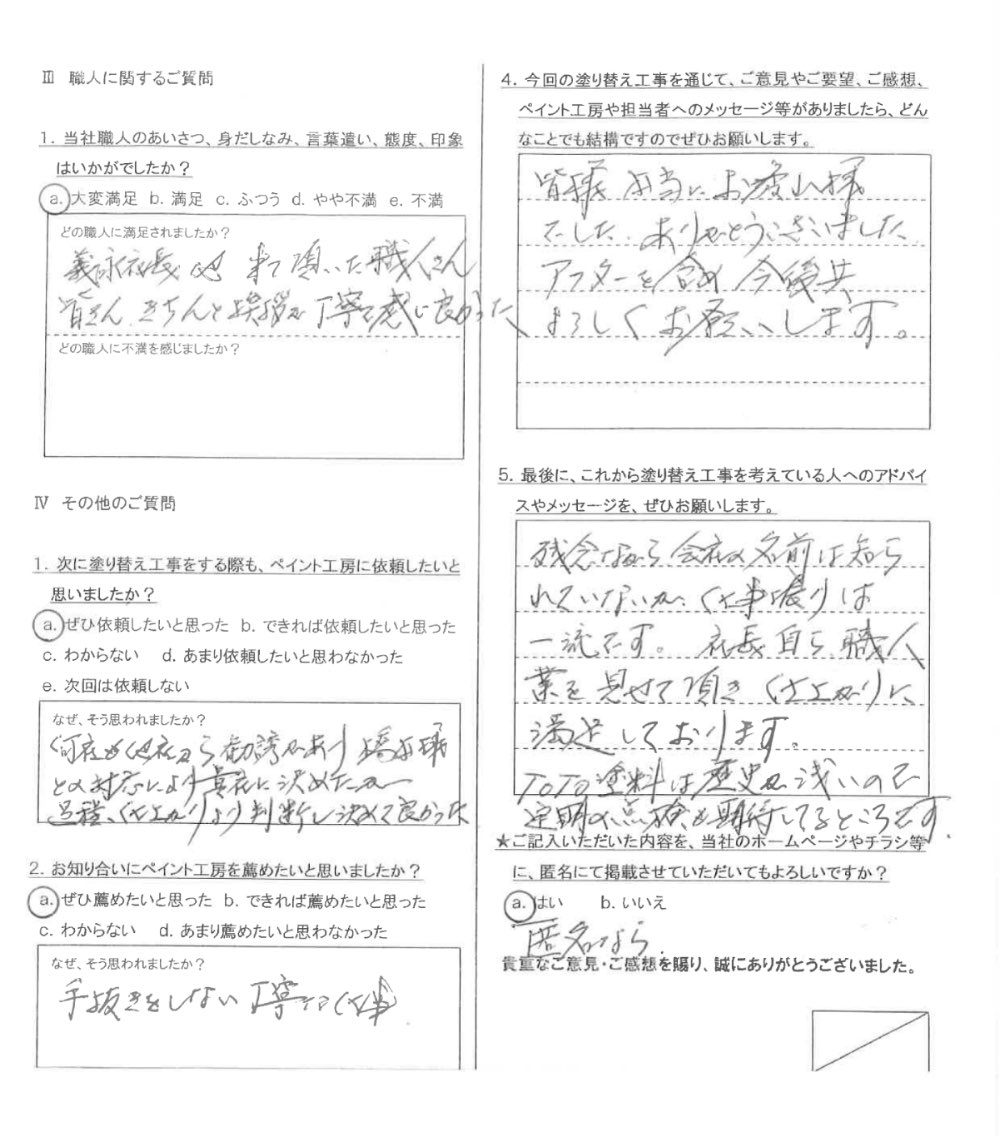 Ⅲ 職人に関するご質問
1. 当社職人のあいさつ、身だしなみ、言葉遣い、態度、印象
はいかがでしたか？
a. 大変満足 b. 満足 c. ふつう d. やや不満 e. 不満
どの職人に満足されましたか？
義永社長他 来て頂いた職人さん
皆さん きちんと挨拶が丁寧で感じ良かった
どの職人に不満を感じましたか？
Ⅳ その他のご質問
1. 次に塗り替え工事をする際も、ペイント工房に依頼したいと
思いましたか？
a. ぜひ依頼したいと思った b. できれば依頼したいと思った
c. わからない d. あまり依頼したいと思わなかった
e. 次回は依頼しない
なぜ、そう思われましたか？
何社か他社から勧誘があり 様
との対応により貴社に決めたが
過程、仕上がりより判断し決めて良かった
2. お知り合いにペイント工房を薦めたいと思いましたか？
a. ぜひ薦めたいと思った b. できれば薦めたいと思った
c. わからない d. あまり薦めたいと思わなかった
なぜ、そう思われましたか？
手抜きをしない 丁寧な仕事
4. 今回の塗り替え工事を通じて、ご意見やご要望、ご感想、
ペイント工房や担当者へのメッセージ等がありましたら、どん
なことでも結構ですのでぜひお願いします。
皆様 本当にお疲れ様
でした。ありがとうございました。
アフターを含め 今後共
よろしくお願いします。
5. 最後に、これから塗り替え工事を考えている人へのアドバイ
スやメッセージを、ぜひお願いします。
残念ながら 会社の名前は知ら
れていないが、仕事振りは
一流です。 社長自ら職人
業を見せて頂き 仕上がりに
満足しております。
TOTO塗料は歴史が浅いので
定期の点検を期待してるところです。
★ご記入いただいた内容を、当社のホームページやチラシ等
に、匿名にて掲載させていただいてもよろしいですか？
a. はい b. いいえ
匿名なら
貴重なご意見・ご感想を賜り、誠にありがとうございました。